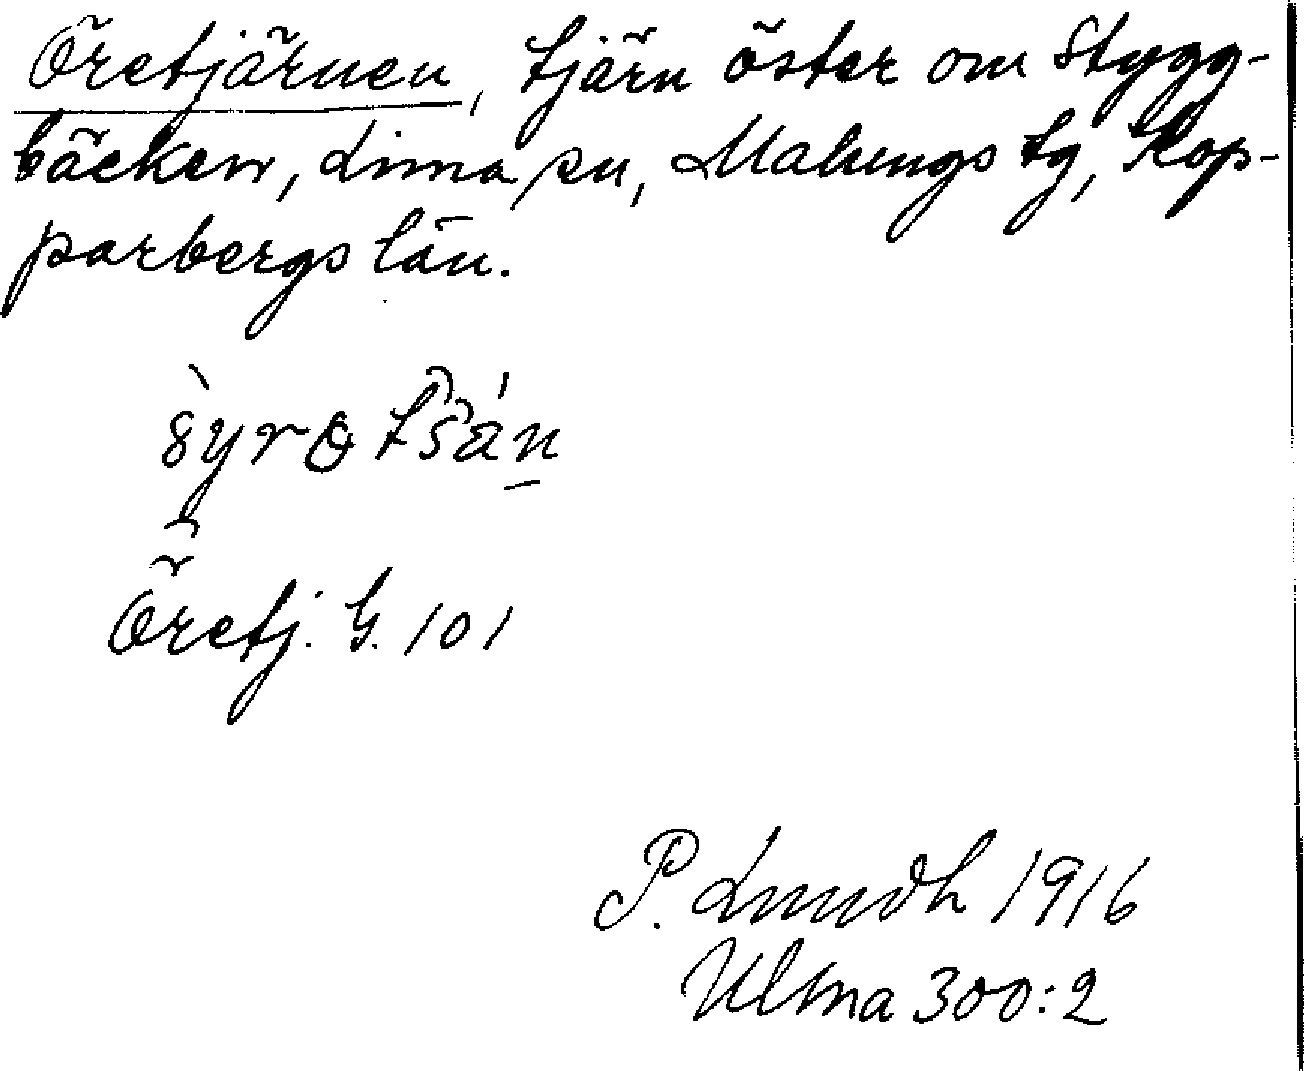 Öretjärnen, tjärn öster om Stygg-
bäcken, Lima sn, Malungs tg, Kop-
parbergs län.
Öretj. G. 101
P. Lundh 1916
Ulma 300:2